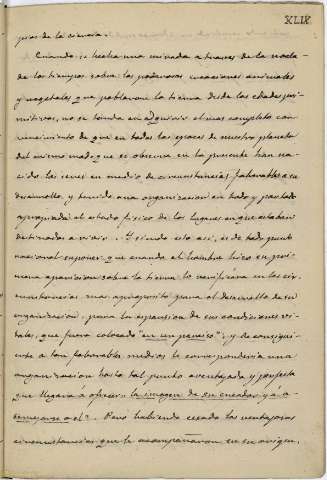 XLIX
pios de la ciencia.
Cuando se hecha una mirada a traves de la noche
de los tiempos sobre las poderosas creaciones animales
y vegetales que poblaron la tierra desde las edades pri-
mitivas, no se tarda en adquirir el mas completo con-
vencimiento de que en todas las epocas de nuestro planeta
del mismo modo que se observa en la presente han na-
cido los seres en medio de circunstancias favorables a su
desarrollo, y tenido una organizacion en todo y por todo
apropiada al estado fisico de los lugares en que estaban
destinados a vivir. Y siendo esto asi, es de todo punto
racional suponer que cuando el hombre hizo su pri-
mera aparicion sobre la tierra lo verificara en las cir-
cunstancias mas aproposito para el desarrollo de su
organizacion, para la expansion de sus condiciones vi-
tales, que fuera colocado "en un paraiso"; y de consiguie-
nte a tan favorables medios le corresponderia una
organizacion hasta tal punto aventajada y perfecta
que llegara á ofrecer la imagen de su creador y a a-
semejarse a el". Pero habiendo cesado las ventajosas
circunstancias que le acompañaron en su origen,